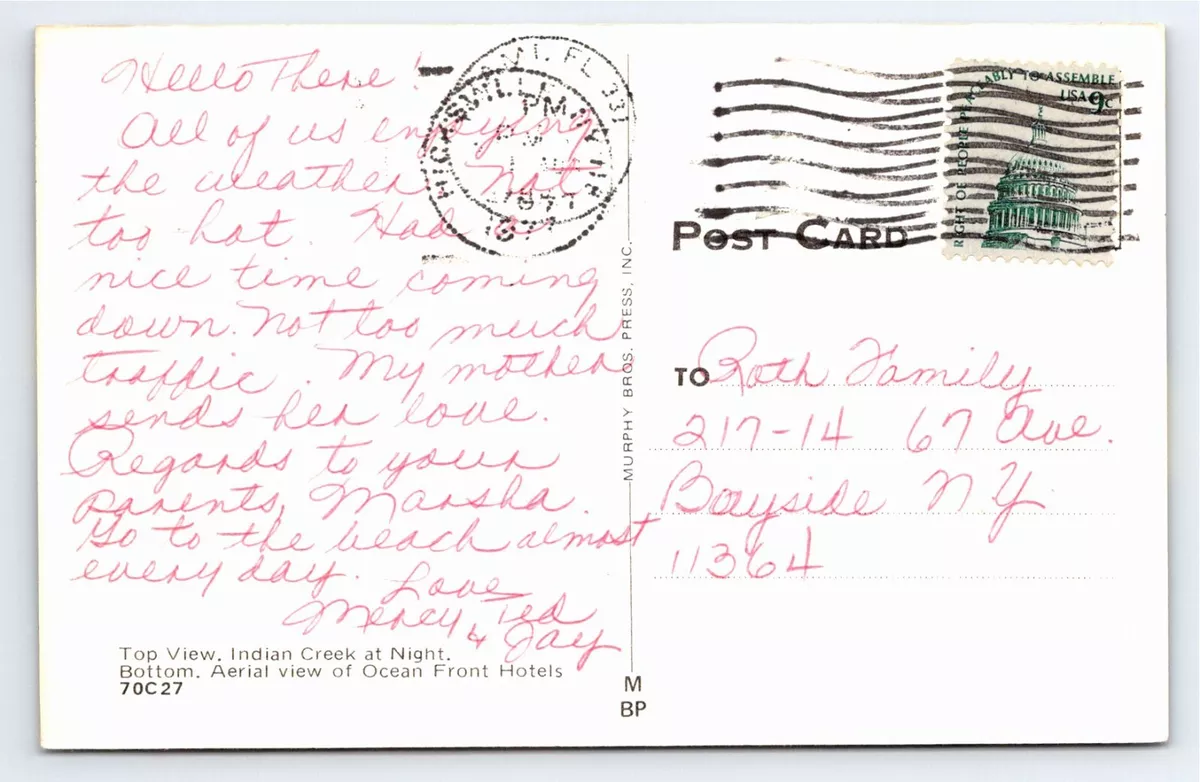 Hello There!
All of us enjoying
the weather. Not
too hot. Had a
nice time coming
down. Not too much
traffic. My mother
sends her love.
Regards to your
parents, Marsha.
Go to the beach almost
every day. Love
Mercy, Ted
& Jay
Top View. Indian Creek at Night.
Bottom. Aerial view of Ocean Front Hotels
70C27
MURPHY BROS. PRESS, INC.
M
BP
MI. FL 331
HICKSVILLE
PM
1977
RIGHT OF PEOPLE PEACEABLY TO ASSEMBLE
USA 9c
POST CARD
TO Roth Family
217-14 67 Ave.
Bayside NY
11364